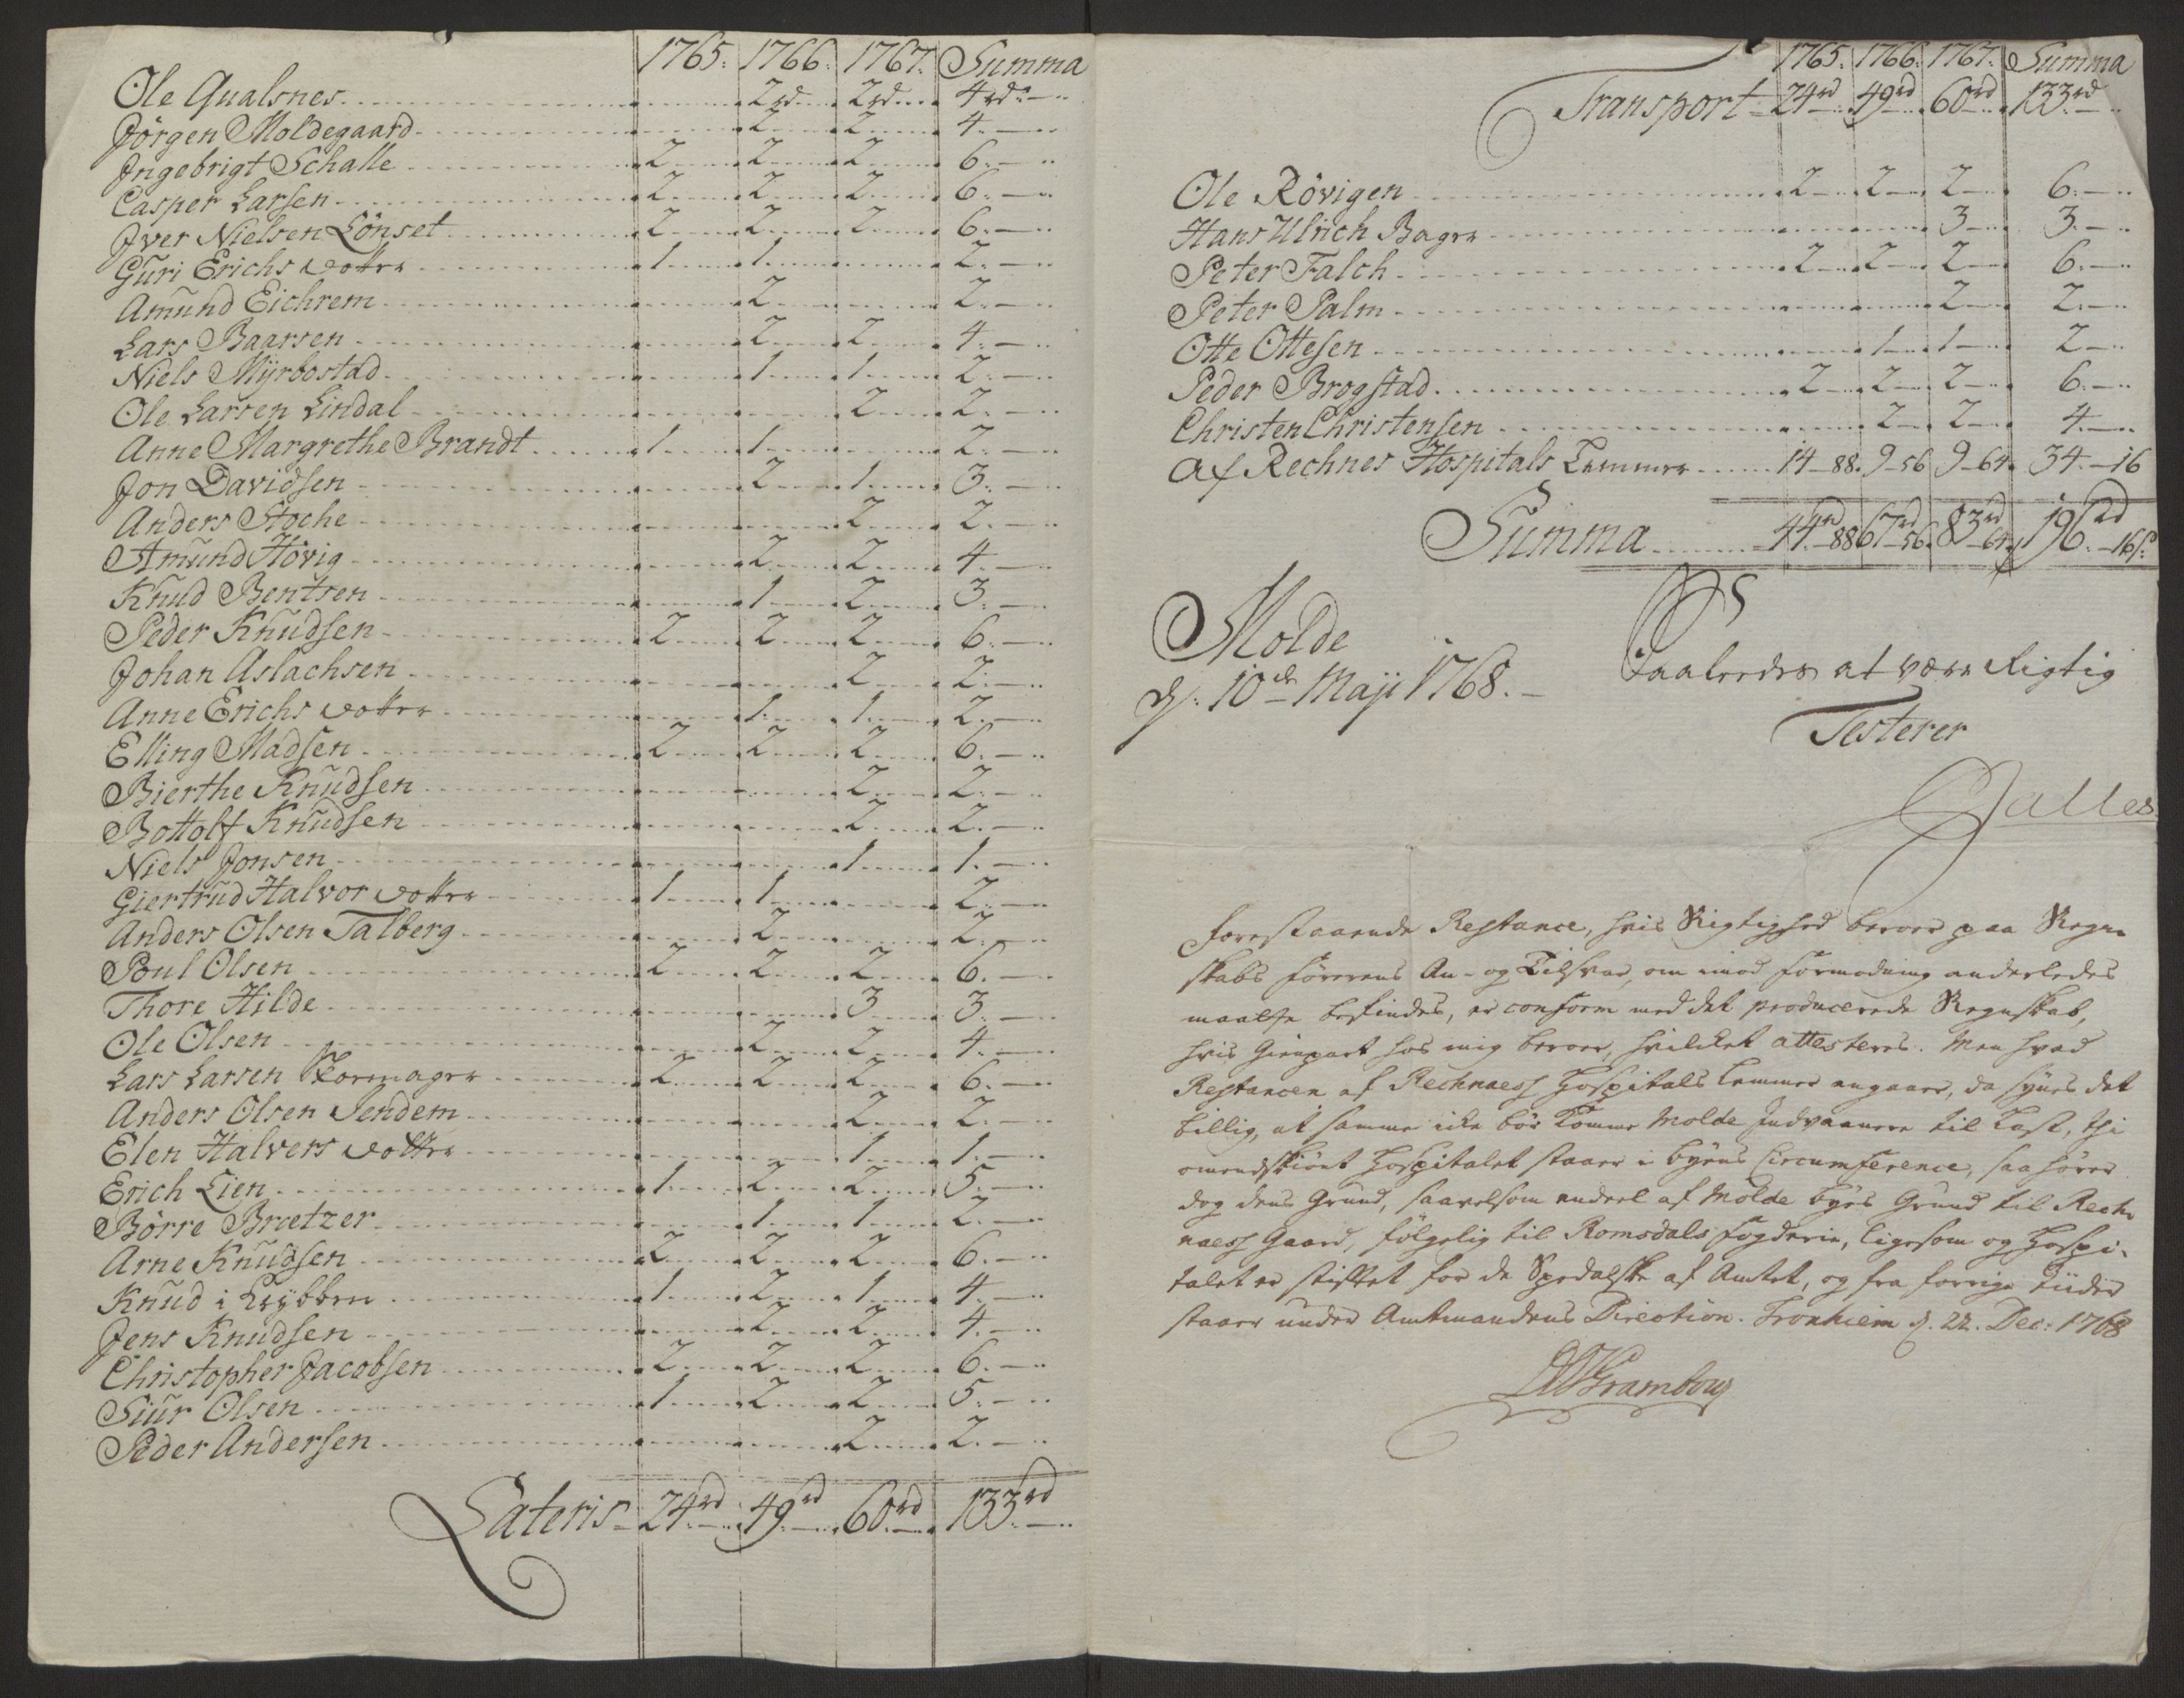 1765. 1766. 1767. Summa
Ole Qualsnes 2rd 2rd 4rd.—
Jörgen Moldegaard 2 2 4.—
Ingebrigt Schalle 2 2 2 6.—
Casper Larsen 2 2 2 6.—
Iver Nielsen Lönset 2 2 2 6.—
Guri Erichs dotter 1 1 2.—
Amund Eichrem 2 2.—
Lars Baarsen 2 2 4.—
Niels Myrbostad 1 1 2.—
Ole Larsen Lindal 2 2.—
Anne Margrethe Brandt 1 1 2.—
Jon Davidsen 2 1 3.—
Anders Stoche 2 2.—
Amund Hövig 2 2 4.—
Knud Bentsen 1 2 3.—
Peder Knudsen 2 2 2 6.—
Johan Aslachsen 2 2.—
Anne Erichs dotter 1 1 2.—
Elling Madsen 2 2 2 6.—
Bierthe Knudsen 2 2.—
Bottolf Knudsen 2 2.—
Niels Jonsen 1 1.—
Giertrud Halvor dotter 1 1 2.—
Anders Olsen Talberg 2 2.—
Poul Olsen 2 2 2 6.—
Thore Hilde 3 3.—
Ole Olsen 2 2 4.—
Lars Larsen Skoemager 2 2 2 6.—
Anders Olsen Sendem 2 2.—
Elen Halvers dotter 1 1.—
Erich Lien 1 2 2 5.—
Börre Brætzer 1 1 2.—
Arne Knudsen 2 2 2 6.—
Knud i 1 2 1 4.—
Jens Knudsen 2 2 4.—
Christopher Jacobsen 2 2 2 6.—
Siur Olsen 1 2 2 5.—
Peder Andersen 2 2.—
Lateris 24rd 49rd 60rd 133rd
1765. 1766. 1767. Summa
Transport 24rd 49rd 60rd 133rd
Ole Rövigen 2 2 2 6.—
Hans Ulrich Bager 3 3.—
Peter Falch 2 2 2 6.—
Peter Palm 2 2.—
Otte Ottesen 1 1 2—
Peder Brogstad 2 2 2 6.—
Christen Christensen 2 2 4.—
Af Rechnes Hospitals Lemmer 14–88. 9–56 9–64. 34.–16
Summa 44rd–88 67rd–56. 83rd–64. 196rd–16s.
Molde
d. 10de Maji 1768.—
Saaledes at være Rigtig
Testerer
Dalles
Forestaaende Restance, hvis Rigtighed beroer paa Regn-
skabs förerens An- og Tilsvar, om imod formodning anderledes
maatte befindes, er conform med det producerede Regnskab,
hvis Gienpart hos mig beroer, hvilket attesteres. Men hvad
Restancen af Rechnaess Hospitals Lemmer angaaer, da synes det
billig, at samme icke bör komme Molde Indvaanere til Last, thi
omendskiönt Hospitalet staaer i byens Circumference, saa hörer
dog dens Grund, saavelsom endeel af Molde byes Grund til Rech-
naess Gaard, fölgelig til Romsdals Fogderie, ligesom og Hospi-
talet er stiftet for de Spedalske af Amtet, og fra forrige Tiider
staaer under Amtmandens Direction. Tronhiem d. 22. Dec: 1768
Grambow